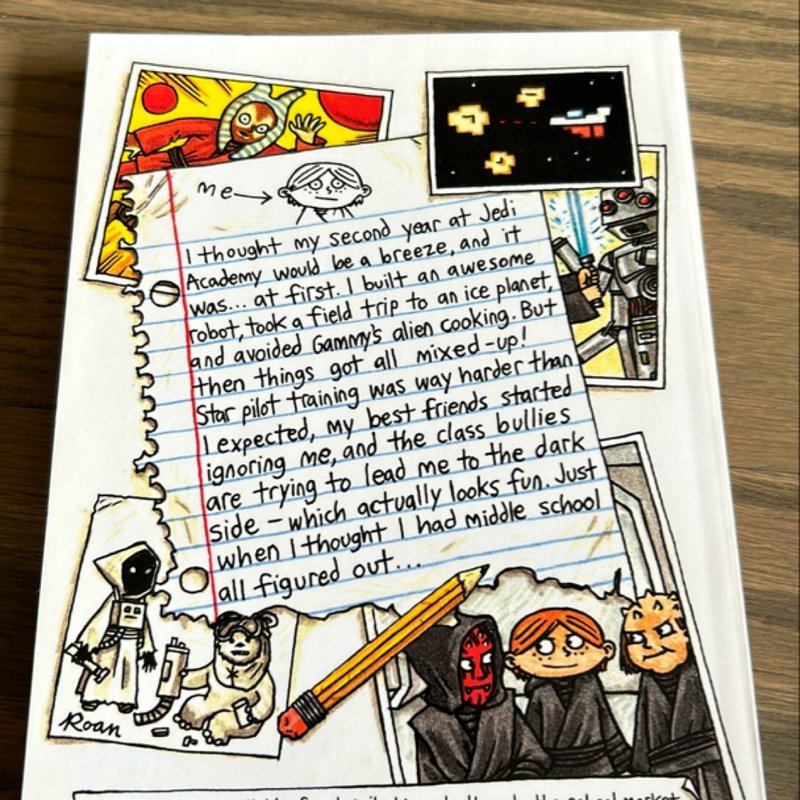 me
I thought my second year at Jedi
Academy would be a breeze, and it
was... at first. I built an awesome
robot, took a field trip to an ice planet,
and avoided Gammy's alien cooking. But
then things got all mixed-up!
Star pilot training was way harder than
I expected, my best friends started
ignoring me, and the class bullies
are trying to lead me to the dark
side – which actually looks fun. Just
when I thought I had middle school
all figured out...
Roan